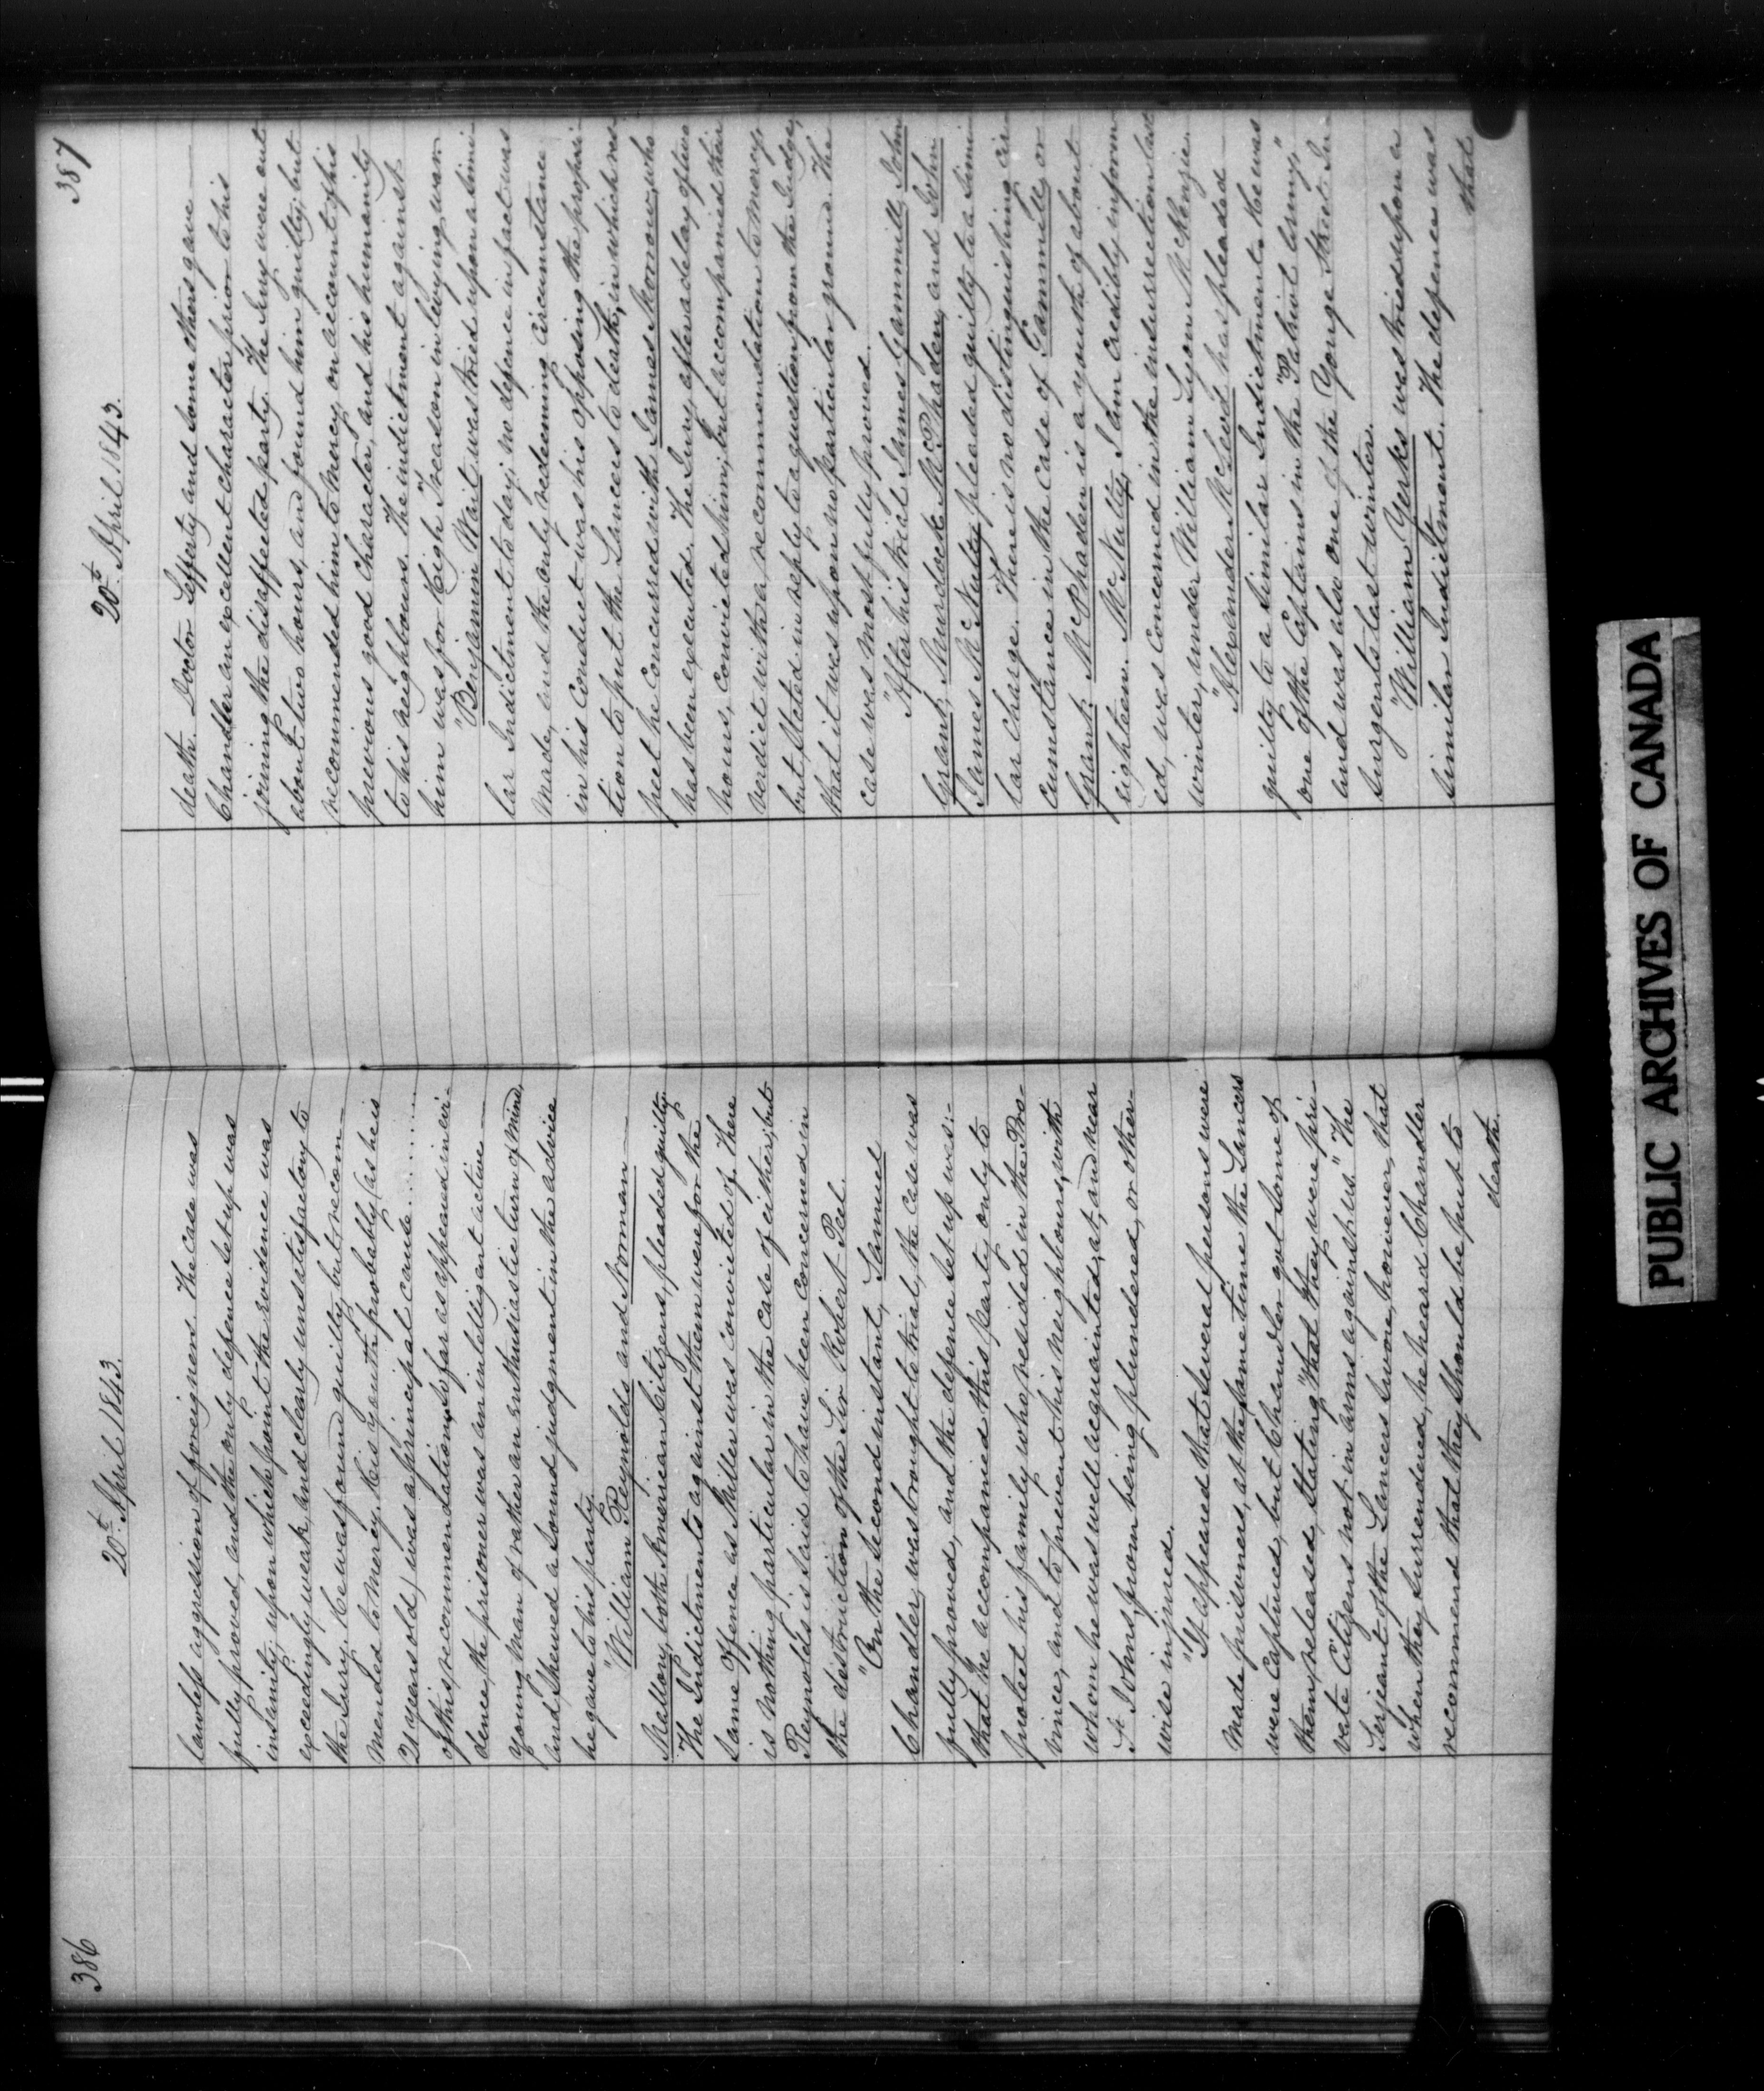 386
20th April 1843.
lawless aggression of foreigners. The case was
fully proved, and the only defence set up was
insanity, upon which point the evidence was
exceedingly weak, and clearly unsatisfactory to
the Jury. He was found guilty, but recom-
mended to mercy. His youth probably (as he is
21 years old) was a principal cause
of this recommendation. So far as appeared in evi-
dence, the prisoner was an intelligent active
young man of rather an enthusiastic turn of mind,
and shewed a sound judgment in the advice
he gave to his party.
"William Reynolds and Norman
Mallory, both American Citizens, pleaded guilty.
The Indictments against them were for the
same offence as Miller was convicted of. There
is nothing particular in the case of either, but
Reynolds is said to have been concerned in
the destruction of the Sir Robert Peel.
"On the second instant, Samuel
Chandler, was brought to trial, the case was
fully proved, and the defence set up was:-
that he accompanied this party only to
protect his family who resided in the Pro-
vince, and to prevent his neighbours, with
whom he was well acquainted, at, and near
St. Johns, from being plundered, or other-
wise injured.
"It appeared that several persons were
made prisoners, at the same time the Lancers
were captured, but Chandler got some of
them, released, stating "that they were pri-
vate Citizens not in arms against us." The
Serjeant of the Lancers swore, however, that
when they surrendered, he heard Chandler
recommend that they should be put to
death.
387
20th April 1843.
death. Doctor Lefferty and some others gave
Chandler an excellent character prior to his
joining the disaffected party. The Jury were out
about two hours, and found him guilty, but
recommended him to mercy, on account of his
previous good character, and his humanity
to his neighbours. The indictment against
him was for High Treason in levying war.
"Benjamin Wait was tried upon a simi-
lar Indictment to day; no defence in fact was
made, and the only redeeming circumstance
in his conduct was his opposing the proposi-
tion to put the Lancers to death, in which res-
pect he concurred with James Morrow, who
has been executed. The Jury, after a delay of two
hours, convicted him; but accompanied their
verdict with a recommendation to mercy,
but stated in reply to a question from the Judge,
that it was upon no particular ground. The
case was most fully proved.
"After his trial James Gammill, John
Grant, Murdock McPhaden, and John
James McNulty pleaded guilty to a simi-
lar charge. There is no distinguishing cir-
cumstance in the case of Gammill, or
Grant. McPhaden is a youth of about
eighteen. McNulty, I am credibly inform-
ed, was concerned in the insurrection last
winter, under William Lyon McKenzie.
"Alexander McLeod has pleaded
guilty to a similar Indictment. He was
one of the Captains in the "Patriot Army,"
and was also one of the Yonge Street In-
surgents last winter.
"William Yerks was tried upon a
similar Indictment. The defence was
that
PUBLIC ARCHIVES OF CANADA